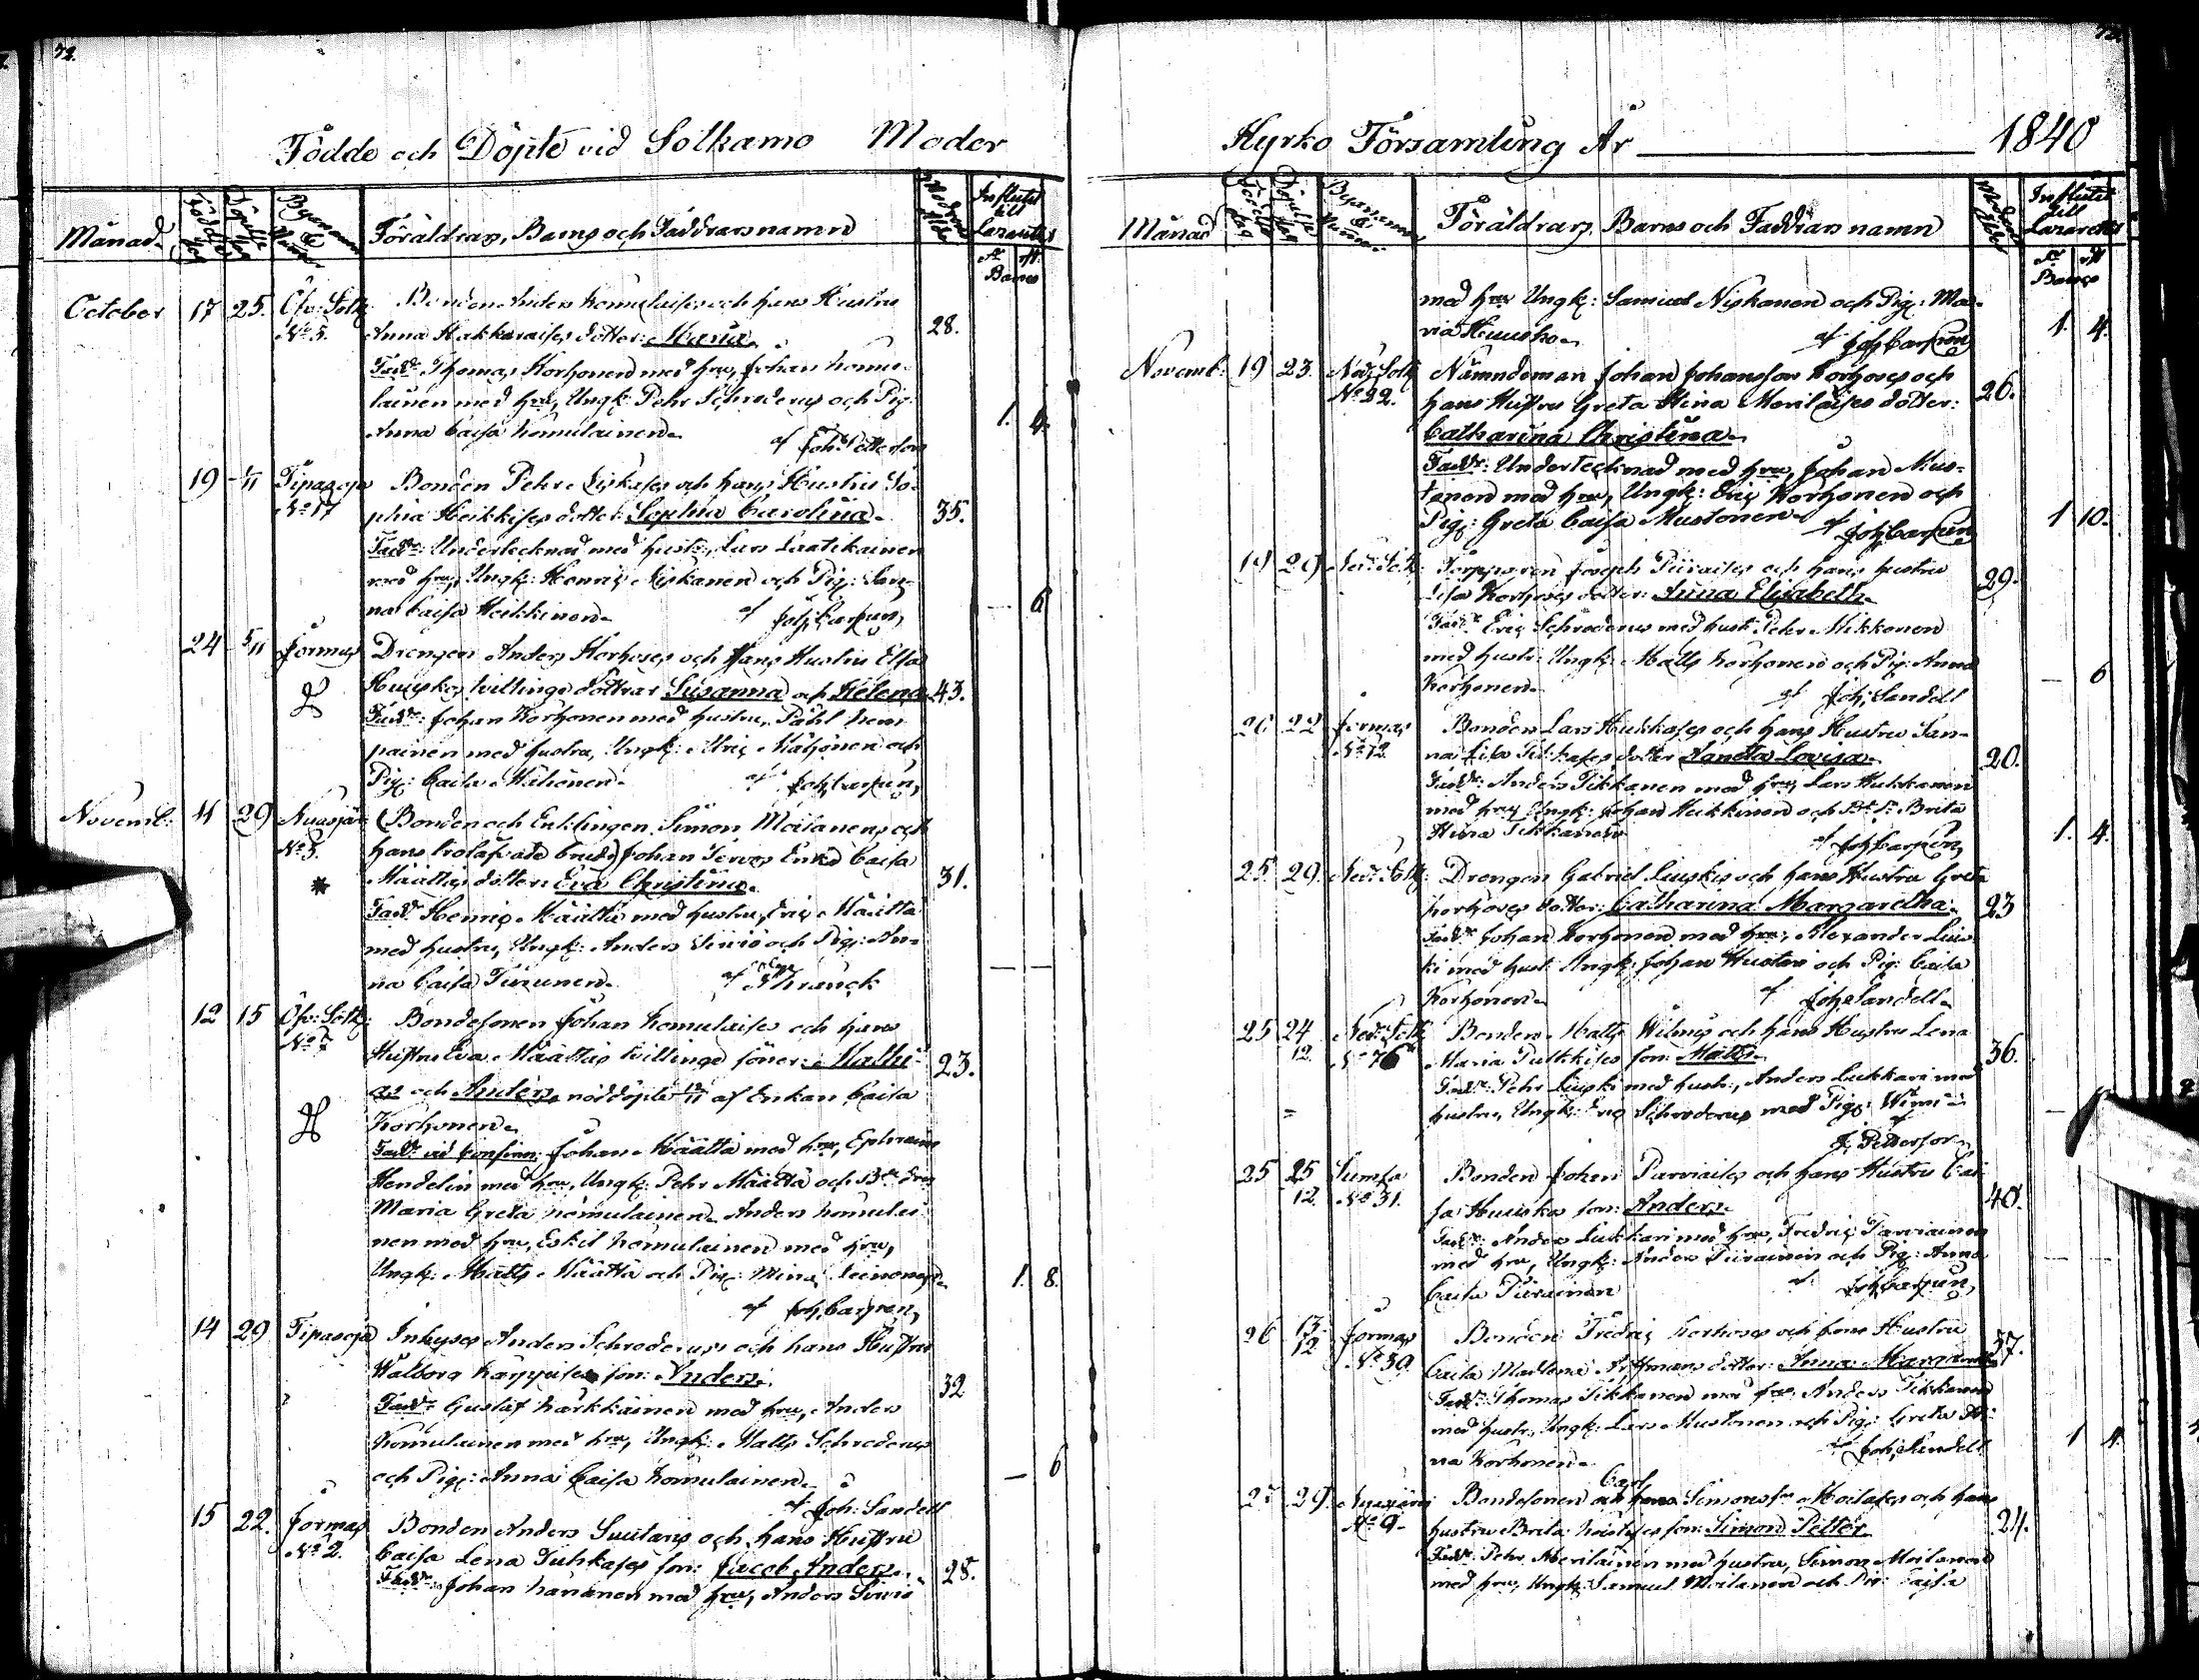 72.
Födde och Döpte vid Sotkamo Moder
Månad. Födelse dag Döpelse dag Byanamn & Nummer Föräldrars, Barns och Faddrars namn Modrens Ålder Influtit till Lazarettet
Banco
October 17 25. Öfv: Sotk: Bonden Anders Komulaises och hans Hustru
No 5. Anna Hakkaraises dotter: Maria. 28.
Faddr: Thomas Korhonen med hru, Johan Komu-
lainen med hru, Ungk: Pehr Schroderus och Pig:
Anna Caisa Komulainen. 1. 4.
af Joh: Petterson
19 1/11 Tipasoja Bonden Pehr Kiskases och hans Hustru So-
No 17 phia Heikkises dotter: Sophia Carolina. 35.
Faddr: Undertecknad med hustr:, Lars Laatikainen
med hru, Ungk: Henric Kiskanen och Pig: San-
na Caisa Heikkinen. af Joh: Carpén, — 6
24 5/11 Jormas Drengen Anders Korhoses och hans Hustru Elsa
Huuskos tvillinge döttrar Susanna och Helena. 43.
Faddr: Johan Korhonen med hustru, Påhl Kem-
painen med hustru, Ungk: Eric Mähönen och
Pig: Caisa Mähönen. af Joh: Carpén,
Novemb: 11 29 Nuasjär (Bonden och Enklingen Simon Moilanens och
No 5. hans trolofvade brud) Johan Servos Enka Caisa
* Määttäs dotter: Eva Christina. 31.
Faddr: Henric Määttä med hustru, Eric Määttä
med hustru, Ungk: Anders Sirviö och Pig: An-
na Caisa Turunen. af Chranck — —
12 15 Öfv: Sotk: Bondesonen Johan Komulaises och hans
No 7 Hustru Eva Määttäs tvillinge söner: Mathi- 23.
as och Anders, nöddöpte 12/11 af Enkan Caisa
Korhonen.
Johan Määttä med hru, Ephraim
Hendelin med hru, Ungk: Pehr Määttä och
Maria Greta Komulainen. Anders Komulai-
nen med hru, Eskil Komulainen med hru,
Ungk: Matts Määttä och Pig: Mina Leinonen. 1. 8.
af Joh: Carpén,
14 29 Tipasoja Inhyses Anders Schroderuses och hans Hustru
Walborg Karppises son: Anders. 32
Faddr: Gustaf Kärkkäinen med hru, Anders
Komulainen med hru, Ungk: Matts Schroderus
och Pig: Anna Caisa Komulainen. — 6
af Joh: Sandell
15 22. Jormas Bonden Anders Suutaris och hans Hustru
No 2. Caisa Lena Tuhkases son: Jacob Anders. 28.
Faddr: Johan Kananen med hru, Anders Sirviö
Kyrko Församling År 1840
Månad Födelse dag Döpelse dag Byanamn & Nummer Föräldrars, Barns och Faddrars namn Modrens Ålder Influtit till Lazarettet
Banco
med hru Ungk: Samuel Niskanen och Pig: Ma-
ria Huusko. af Joh: Carpén 1. 4.
Novemb: 19 23. Ned: Sotk Nämndeman Johan Johansson Korhoses och
No 22. hans Hustru Greta Stina Meriläises dotter: 26.
Catharina Christina.
Faddr: Undertecknad med hru, Johan Mus-
tonen med hru, Ungk: Eric Korhonen och
Pig: Greta Caisa Mustonen. af Joh: Carpén 1 10.
19 29 Ned: Sotk: Torpparen Joseph Piiraises och hans hustru
Lisa Korhoses dotter: Anna Elisabeth. 29.
Faddr: Eric Schroderus med hustr: Pehr Mikkonen
med hustr: Ungk: Matts Korhonen och Pig: Anna
Korhonen. af Joh: Sandell — 6
20 22 Jormas Bonden Lars Hukkases och hans Hustru San-
No 12. na Lisa dotter Sanna Lovisa. 20.
Faddr: Anders Tikkanen med hru, Lars Hukkanen
med hru, Ungk: Johan Heikkinen och Brita
Stina Tikkanen af Joh: Carpén, 1. 4.
25 29. Ned: Sotk: Drengen Gabriel Liuskis och hans Hustru Greta
Korhoses dotter: Catharina Margaretha. 23
Faddr: Johan Korhonen med hru, Alexander Lius-
ki med hust: Ungk: Johan Hustari och Pig: Caisa
Korhonen. af Joh: Sandell.
25 24/12. Ned: Sotk Bonden Matts Wilmis och hans Hustru Lena
No 76 Maria Pulkkises son: Matts. 36.
Faddr: Pehr Liuski med hustr:, Anders Lukkari med
hustru, Ungk: Eric Schroderus med Pig: —
af J. Petterson.
25 25/12. Sumsa Bonden Johan Parviaises och hans Hustru Cai-
No 31. sa Huuskos son: Anders. 40.
Faddr: Anders Lukkari med hru, Fredric Parviainen
med hru, Ungk: Anders Piirainen och Pig: Anna
Caisa Piirainen af Joh: Carpén,
26 13/12 Jormas Bonden Fredric Korhoses och hans Hustru 37.
No 39 Caisa Madlena dotter: Anna Margaretha
Faddr: Thomas Tikkanen med hru, Anders Tikkanen
med hustr:, Ungk: Lars Mustonen och Pig: Greta Sti-
na Korhonen. af Joh: Sandell 1 4.
27 29. Nuasjärvi Bondesonen Carl Simonsson Moilases och hans
No 9. hustru Brita son: Simon Petter. 24.
Faddr: Pehr Meriläinen med hustru, Simon Moilanen
med hru, Ungk: Samuel Moilanen och Pig: Caisa